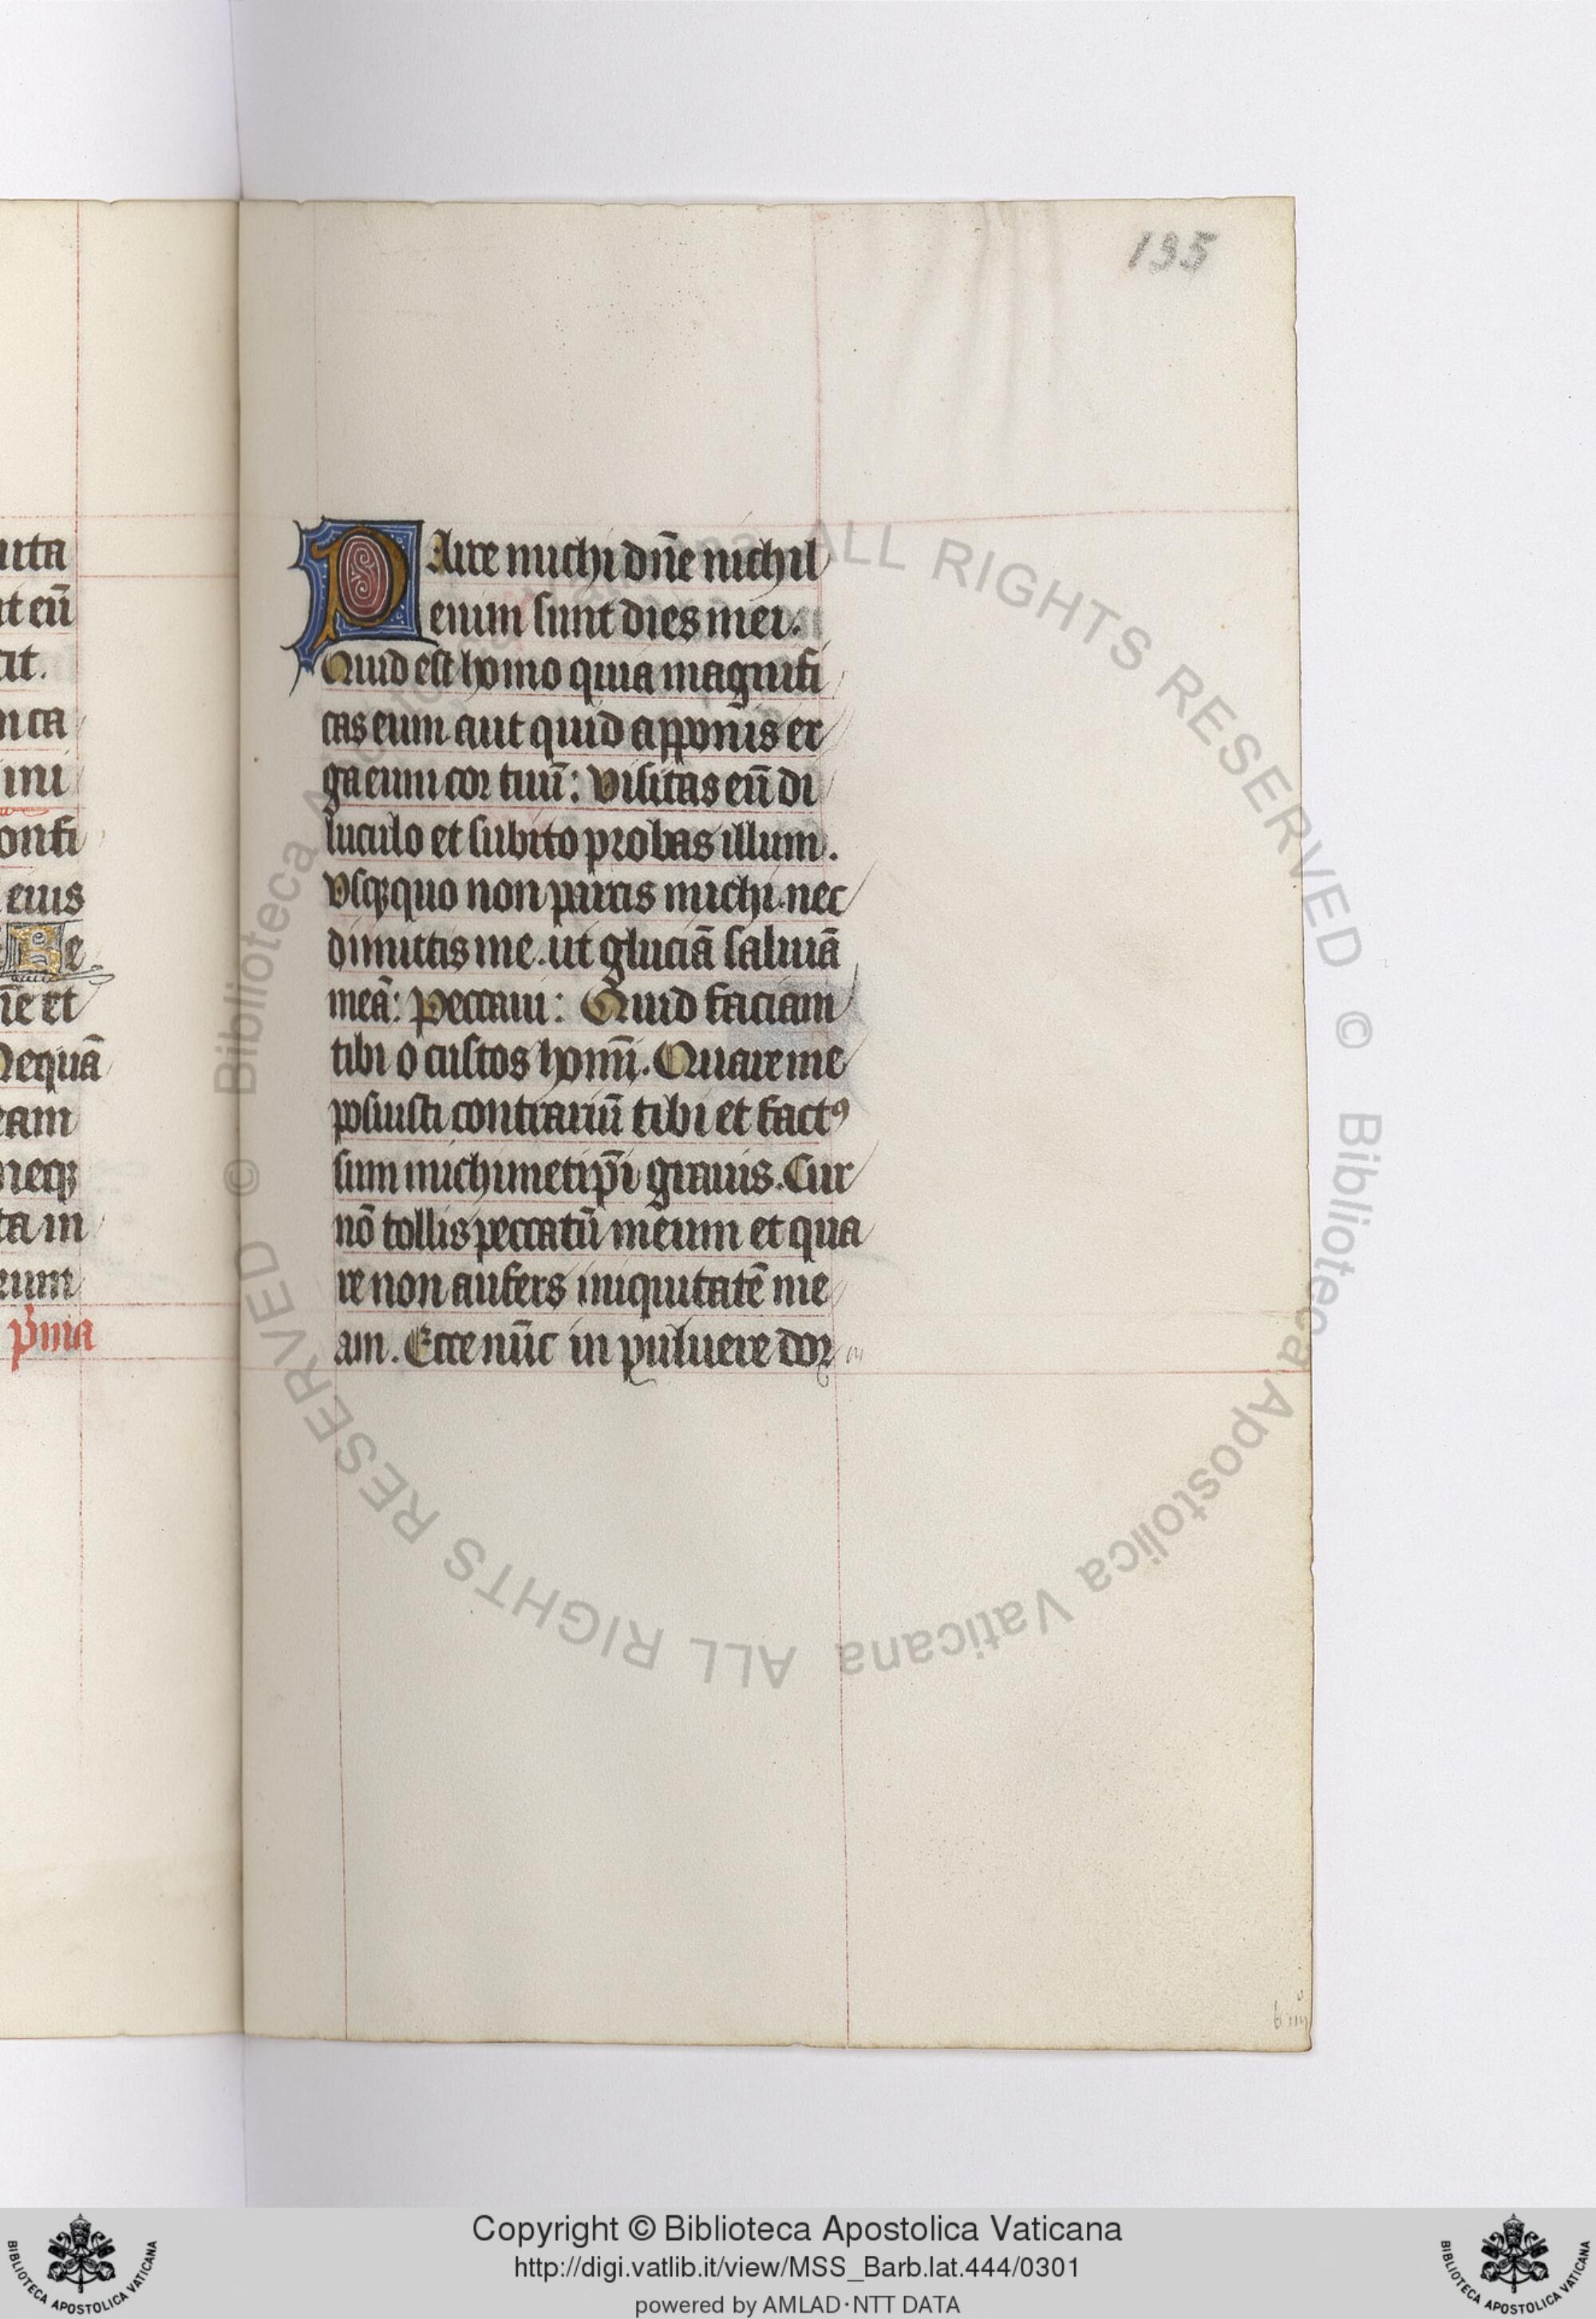 195
uta
nt eū
cit.
n ca
ini
onfi
eius
Be
ne et
Nequā
eam
neqꝫ
ta in
eum
p̄ma
PArce michi dn̄e nichil
enim sunt dies mei.
Quid est homo quia magnifi
cas eum aut quid apponis er
ga eum cor tuū: visitas eū di
luculo et subito probas illum.
Vsqꝫquo non parcis michi. nec
dimittis me. ut gluciā saliuā
meā: peccaui: Quid faciam
tibi o custos homī. Quare me
posuisti contrariū tibi et fact9
sum michimetip̄i grauis. Cur
nō tollis peccatū meum et qua
re non aufers iniquitatē me
am. Ecce nūc in puluere dor
b iiij
© Biblioteca Apostolica Vaticana ALL RIGHTS RESERVED © Biblioteca Apostolica Vaticana ALL RIGHTS RESERVED
Copyright © Biblioteca Apostolica Vaticana
http://digi.vatlib.it/view/MSS_Barb.lat.444/0301
powered by AMLAD·NTT DATA
BIBLIOTECA APOSTOLICA VATICANA
BIBLIOTECA APOSTOLICA VATICANA